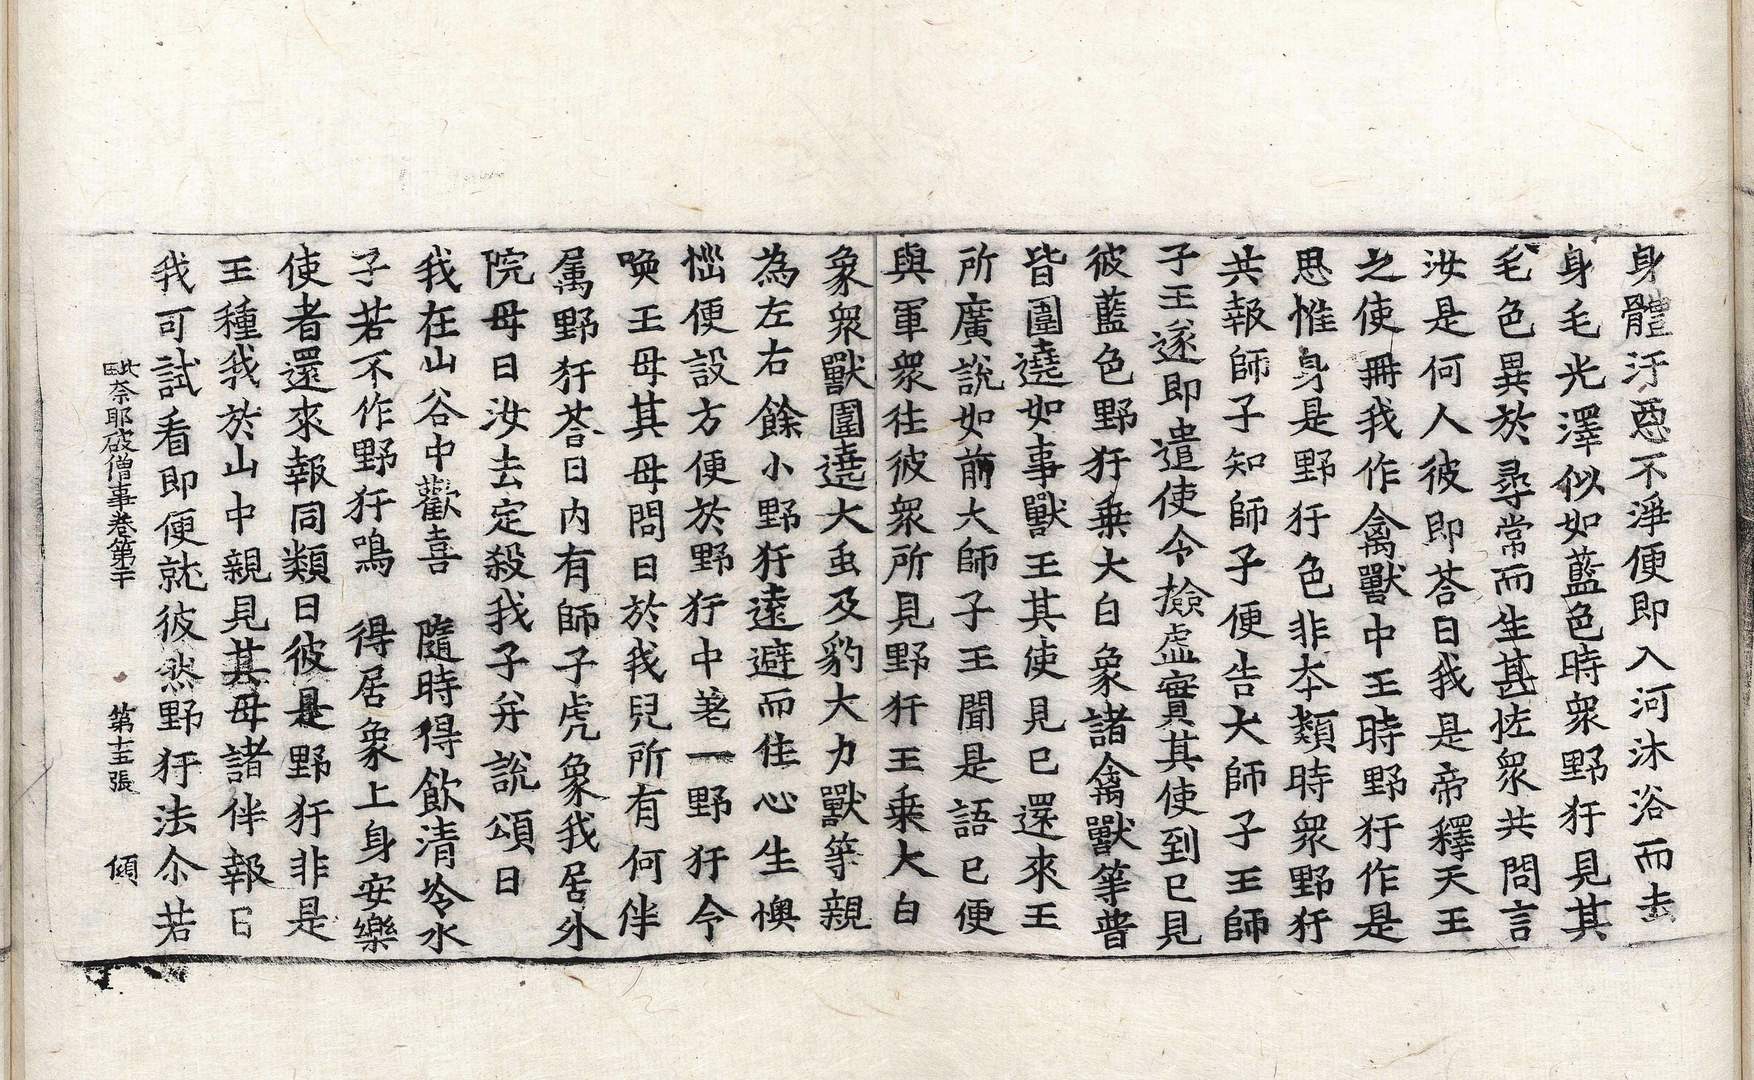 身體汙惡不淨便即入河沐浴而去
身毛光澤似如藍色時衆野犴見其
毛色異於尋常而生甚恠衆共問言
汝是何人彼即荅曰我是帝釋天王
之使冊我作禽獸中王時野犴作是
思惟身是野犴色非本類時衆野犴
共報師子知師子便告大師子王師
子王遂即遣使令撿虛實其使到已見
彼藍色野犴乗大白象諸禽獸等普
皆圍遶如事獸王其使見已還來王
所廣說如前大師子王聞是語已便
與軍衆徃彼衆所見野犴王乗大白
象衆獸圍遶大虫及豹大力獸等親
為左右餘小野犴遠避而住心生懊
惱便設方便於野犴中差一野犴令
喚王母其母問曰於我兒所有何伴
属野犴荅曰内有師子虎象我居外
院母曰汝去定殺我子并說頌曰
我在山谷中歡喜　隨時得飲清冷水
子若不作野犴鳴　得居象上身安樂
使者還來報同類曰彼是野犴非是
王種我於山中親見其母諸伴報曰
我可試看即便就彼然野犴法尒若
毗奈耶破僧事卷第二十　第十五張　傾